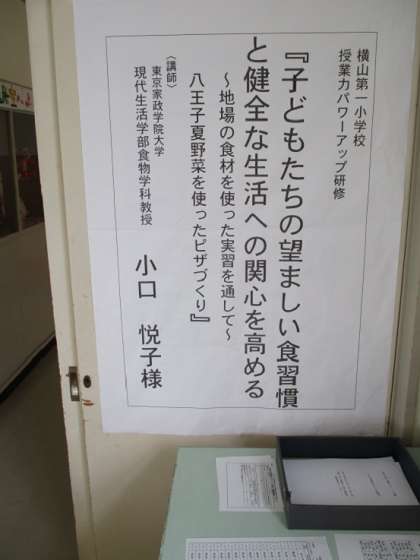 横山第一小学校
授業力パワーアップ研修
『子どもたちの望ましい食習慣
と健全な生活への関心を高める
～地場の食材を使った実習を通して～
八王子夏野菜を使ったピザづくり』
〈講師〉
東京家政学院大学
現代生活学部食物学科教授
小口 悦子様